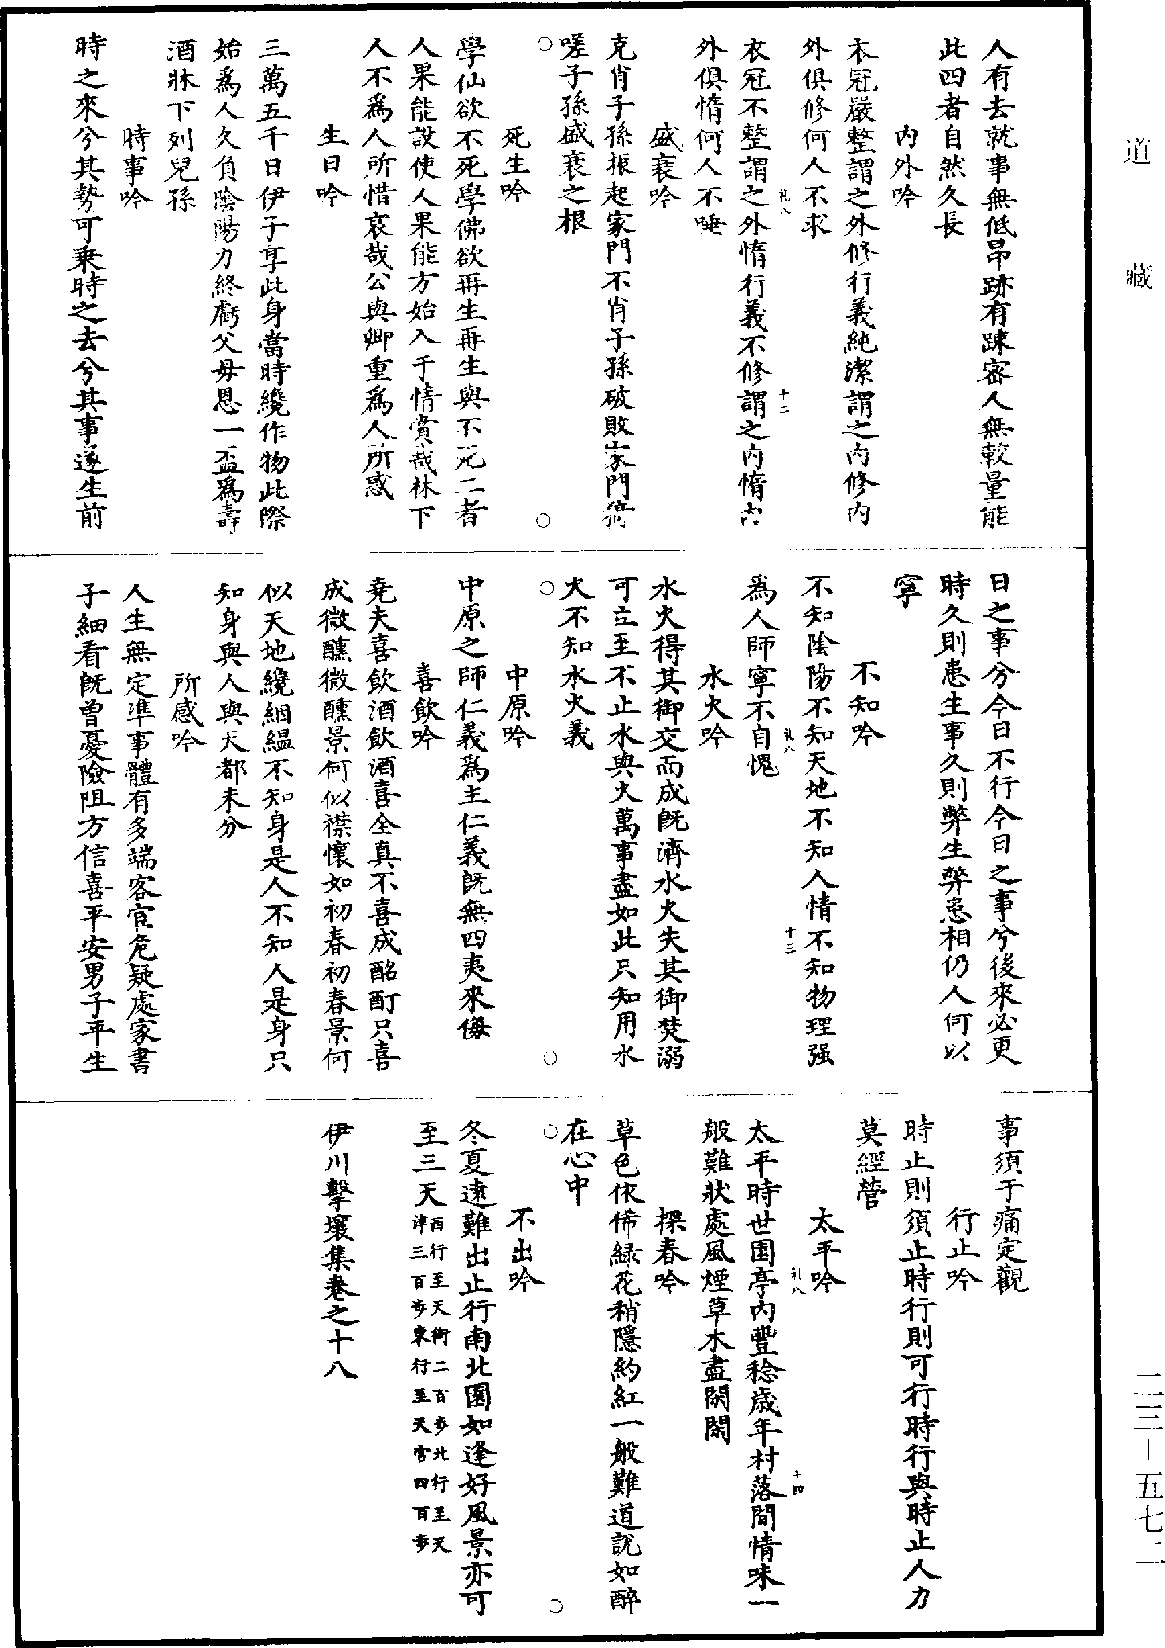 道藏
人有去就事無低昂跡有踈密人無較量能
此四者自然久長
內外吟
衣冠嚴整謂之外修行義純潔謂之內修內
外俱修何人不求
衣冠不整謂之外惰行義不修謂之內惰內
外俱惰何人不唾
盛衰吟
克肖子孫振起家門不肖子孫破敗家門猗
嗟子孫盛衰之根
死生吟
學仙欲不死學佛欲再生再生與不死二者
人果能設使人果能方始入于情賞哉林下
人不為人所惜哀哉公與卿重為人所惑
生日吟
三萬五千日伊予享此身當時纔作物此際
始為人久負陰陽力終虧父母恩一盃為壽
酒牀下列兒孫
時事吟
時之來兮其勢可乘時之去兮其事遂生前
日之事兮今日不行今日之事兮後來必更
時久則患生事久則弊生弊患相仍人何以
寧
不知吟
不知陰陽不知天地不知人情不知物理强
為人師寧不自愧
水火吟
水火得其御交而成旣濟水火失其御焚溺
可立至不止水與火萬事盡如此只知用水
火不知水火義
中原吟
中原之師仁義為主仁義旣無四夷來侮
喜飲吟
堯夫喜飲酒飲酒喜全真不喜成酩酊只喜
成微醺微醺景何似襟懷如初春初春景何
似天地纔絪緼不知身是人不知人是身只
知身與人與天都未分
所感吟
人生無定準事體有多端客宦危疑處家書
子細看旣曾憂險阻方信喜平安男子平生
事須于痛定觀
行止吟
時止則須止時行則可行時行與時止人力
莫經營
太平吟
太平時世園亭內豐稔歲年村落間情味一
般難狀處風煙草木盡閑閑
探春吟
草色依俙緑花稍隱約紅一般難道說如醉
在心中
不出吟
冬夏遠難出止行南北園如逢好風景亦可
至三天西行至天街二百步北行至天
津三百步東行至天宮四百步
伊川擊壤集卷之十八
礼八
十二
礼八
十三
礼八
十四
二三—五七二